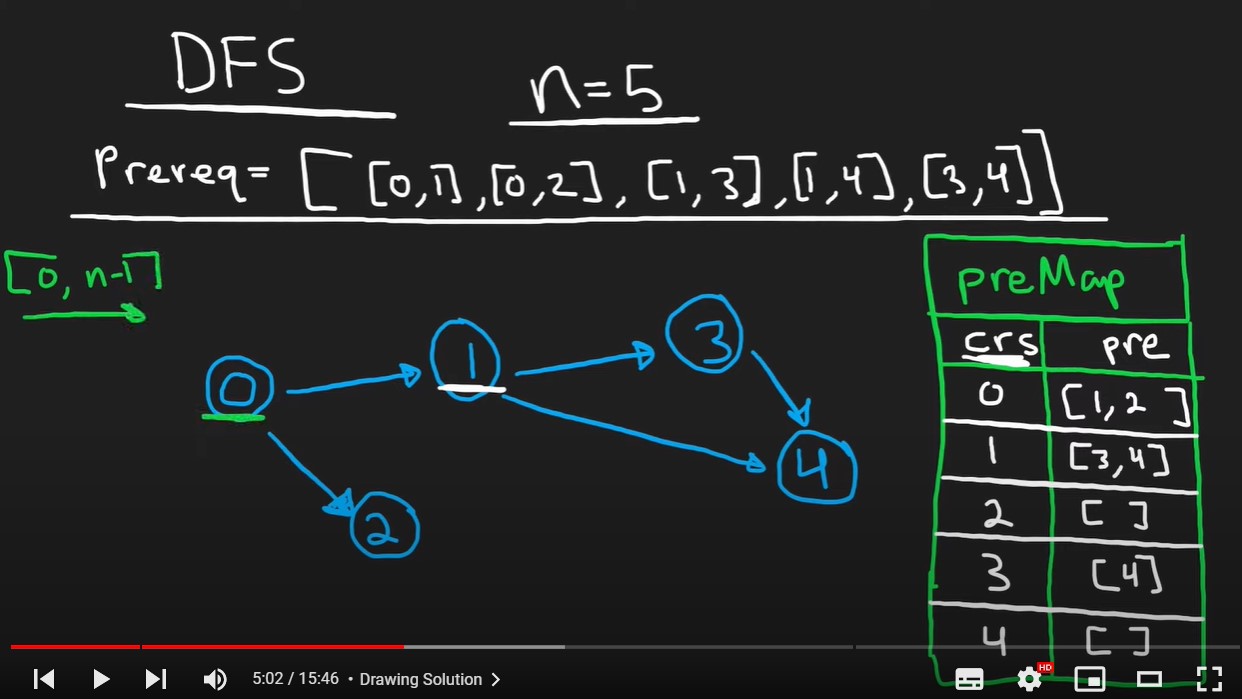 DFS
n=5
Prereq= [ [0,1],[0,2], [1,3],[1,4],[3,4]]
[0, n-1]
preMap
crs pre
0 [1,2 ]
1 [3,4]
2 [ ]
3 [4]
4 [ ]
0
1
3
4
2
5:02 / 15:46 • Drawing Solution >
HD